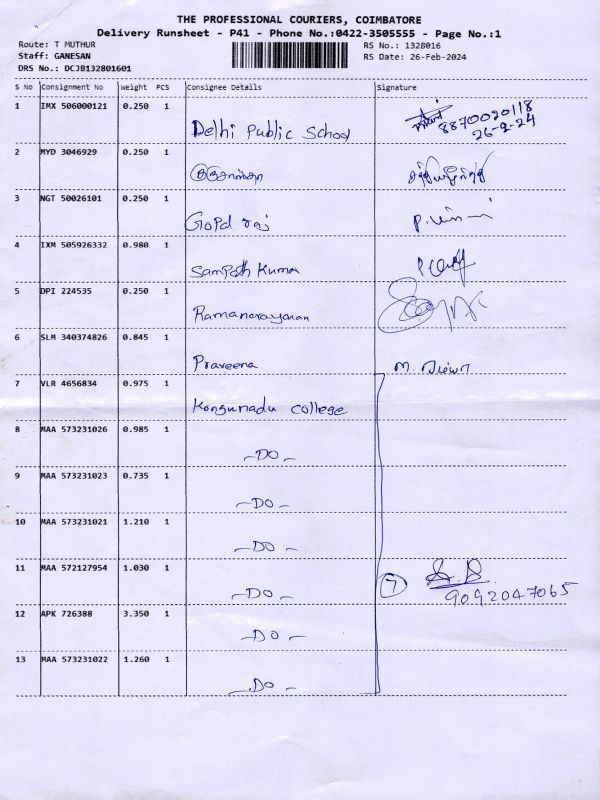 THE PROFESSIONAL COURIERS, COIMBATORE
Delivery Runsheet - P41 - Phone No.:0422-3505555 - Page No.:1
Route: T MUTHUR RS No.: 1328016
Staff: GANESAN RS Date: 26-Feb-2024
DRS No.: DCJB132801601
S No Consignment No Weight PCS Consignee Details Signature
1 IMX 506000121 0.250 1 Delhi Public School 8870020118
26-2-24
2 MYD 3046929 0.250 1
3 NGT 50026101 0.250 1 Gopal
4 IXM 505926332 0.980 1 Sampath Kumar
5 DPI 224535 0.250 1 Ramanarayanan
6 SLM 340374826 0.845 1 Praveena
7 VLR 4656834 0.975 1 Kongunadu college
8 MAA 573231026 0.985 1 -DO-
9 MAA 573231023 0.735 1 -DO-
10 MAA 573231021 1.210 1 -DO-
11 MAA 572127954 1.030 1 -DO- 7 9092047065
12 APK 726388 3.350 1 -DO-
13 MAA 573231022 1.260 1 -DO-